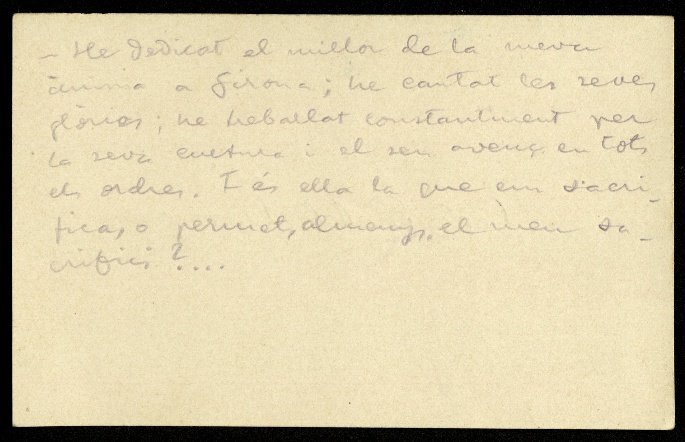 - He dedicat el millor de la meva
ànima a Girona; he cantat les seves
glòries; he treballat constantment per
la seva cultura i el seu avenç en tots
els ordres. I és ella la que em sacri-
fica, o permet, almenys, el meu sa-
crifici?....